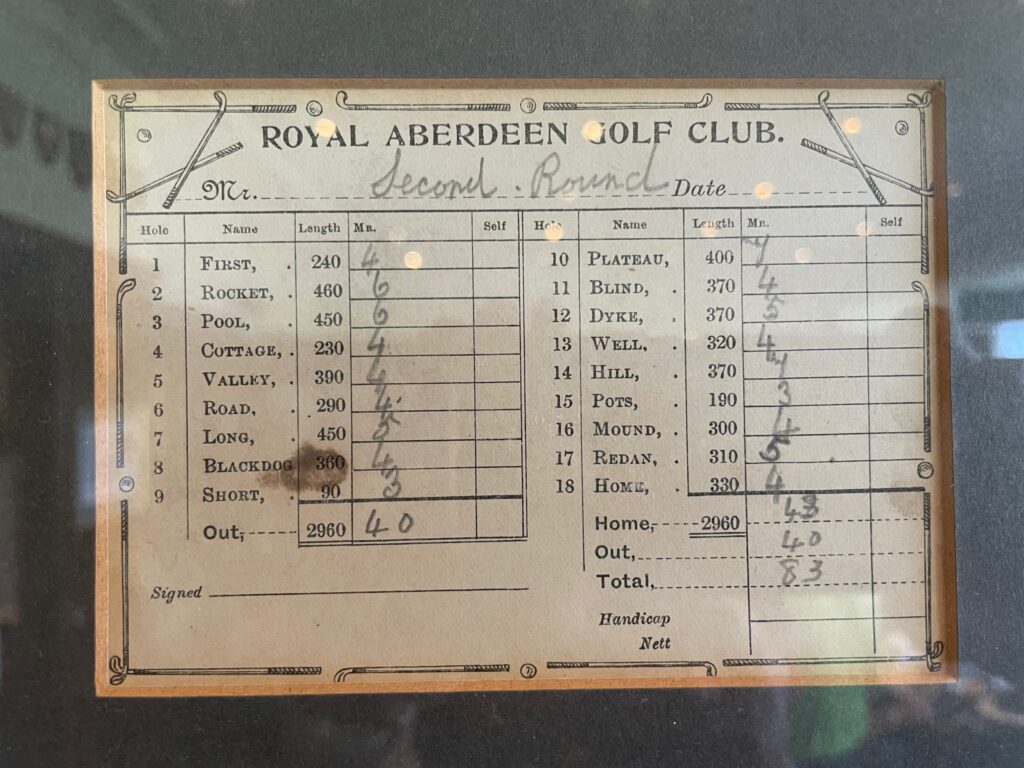 ROYAL ABERDEEN GOLF CLUB.
Mr. Second. Round Date
Hole Name Length MR. Self
1 FIRST, . 240 4
2 ROCKET, . 460 6
3 POOL, . 450 6
4 COTTAGE, . 230 4
5 VALLEY, . 390 4
6 ROAD, . 290 4
7 LONG, . 450 5
8 BLACKDOG 360 4
9 SHORT, . 90 3
Out, 2960 40
Signed
Hole Name Length MR. Self
10 PLATEAU, 400 7
11 BLIND, . 370 4
12 DYKE, . 370 5
13 WELL, . 320 4
14 HILL, . 370 7
15 POTS, . 190 3
16 MOUND, . 300 4
17 REDAN, . 310 5
18 HOME, . 330 4
Home, 2960 43
Out, 40
Total, 83
Handicap
Nett